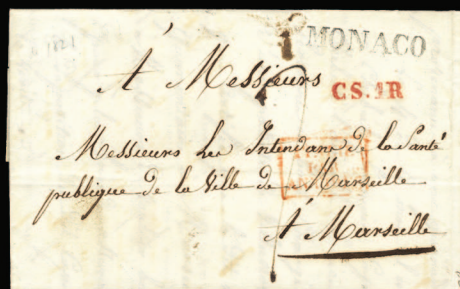 1821
MONACO
A Messieurs
CS.1R
Messieurs les Intendans de la Santé
publique de la Ville de Marseille
A Marseille